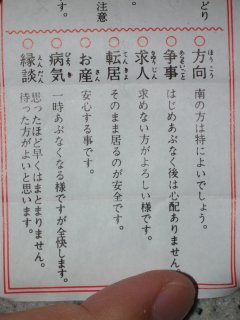 どり
す。
注意
○方向 ほうこう 南の方は特によいでしょう。
○争事 あらそいごと はじめあぶなく後は心配ありません。
○求人 きゅうじん 求めない方がよろしい様です。
○転居 てんきょ そのまま居るのが安全です。
○お産 おさん 安心する事です。
○病気 びょうき 一時あぶなくなる様ですが全快します。
○縁談 えんだん 思ったほど早くはまとまりません。
待った方がよいと思います。